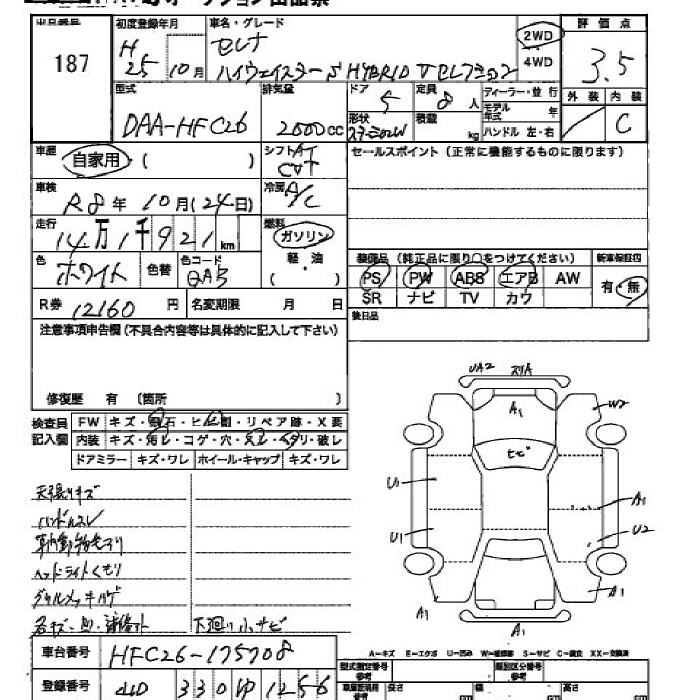 出品番号 初度登録年月 車名・グレード 評価点
187 H 25 10月 セレナ 2WD 3.5
ハイウェイスター S HYBRID Vセレクション 4WD
外装 内装
型式 排気量 ドア 定員 ディーラー・並行
DAA-HFC26 2000cc 5 8人 モデル年式 年 C
形状 積載 kg ハンドル 左・右
車歴 シフト AT セールスポイント(正常に機能するものに限ります)
自家用 ( ) CVT
車検 冷房
R8年10月(24日) A/C
走行 燃料
14万1千921km ガソリン
色 色替 色コード 軽・油
ホワイト QAB ( )
装備品(純正品に限り○をつけてください) 新車保証書
PS PW ABS エアB AW 有・無
R券 12160円 名変期限 月 日 SR ナビ TV カワ
注意事項申告欄(不具合内容等は具体的に記入して下さい) 後日品
修復歴 有 (箇所 )
検査員 FW キズ・飛石・ヒビ・割・リペア跡・X要
記入欄 内装 キズ・汚れ・コゲ・穴・スレ・ヘタリ・破レ
ドアミラー キズ・ワレ ホイール・キャップ キズ・ワレ
UA2
A1 W2
ヒビ
U1 A1
U1 U2
A1 A1
A1
天張りキズ
ハンドルスレ
ヘッドライトくもり
グリルメッキハゲ
下廻り小サビ
A-キズ E-エクボ U-凹み W-補修跡 S-サビ C-腐食 XX-交換済
車台番号 HFC26-175708
型式指定番号 参考 類別区分番号 参考
登録番号 330 ゆ 1256
長さ cm 幅 cm 高さ cm